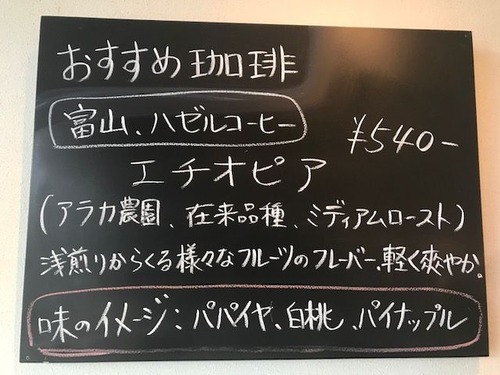 おすすめ珈琲
富山、ハゼルコーヒー
¥540-
エチオピア
(アラカ農園、在来品種、ミディアムロースト)
浅煎りからくる様々なフルーツのフレーバー、軽く爽やか。
味のイメージ：パパイヤ、白桃、パイナップル